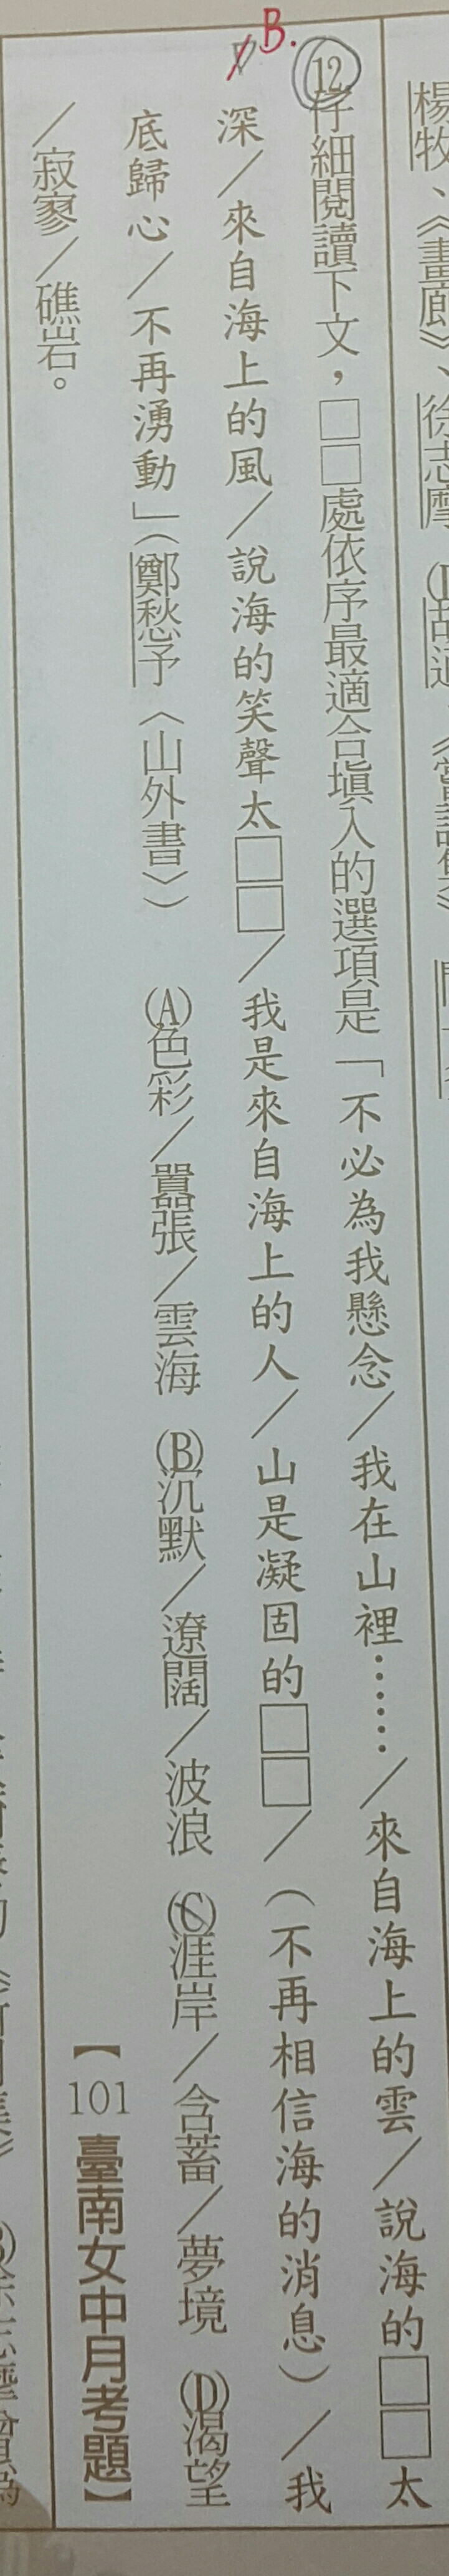 楊牧、《畫廊》、徐志摩
B.
⑫仔細閱讀下文，□□處依序最適合填入的選項是「不必為我懸念／我在山裡……／來自海上的雲／說海的□□太
深／來自海上的風／說海的笑聲太□□／我是來自海上的人／山是凝固的□□／（不再相信海的消息）／我
底歸心／不再湧動」（鄭愁予〈山外書〉）　(A)色彩／囂張／雲海　(B)沉默／遼闊／波浪　(C)涯岸／含蓄／夢境　(D)渴望
／寂寥／礁岩。
【101臺南女中月考題】